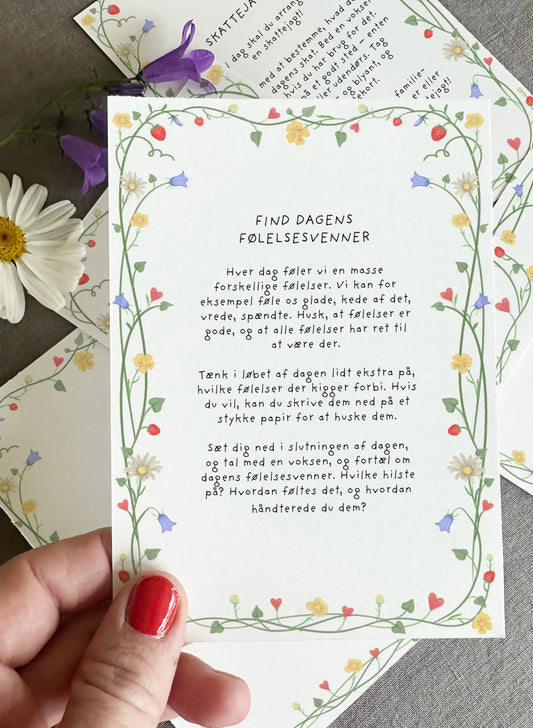 SKATTEJA
I dag skal du arran
en skattejagt!
med at bestemme, hvad d
dagens skat. Bed en voksen
hvis du har brug for det.
på et godt sted – enten
ller udendørs. Tag
og blyant, og
ekort.
familie-
er eller
tejagt!
FIND DAGENS
FØLELSESVENNER
Hver dag føler vi en masse
forskellige følelser. Vi kan for
eksempel føle os glade, kede af det,
vrede, spændte. Husk, at følelser er
gode, og at alle følelser har ret til
at være der.
Tænk i løbet af dagen lidt ekstra på,
hvilke følelser der kigger forbi. Hvis
du vil, kan du skrive dem ned på et
stykke papir for at huske dem.
Sæt dig ned i slutningen af dagen,
og tal med en voksen, og fortæl om
dagens følelsesvenner. Hvilke hilste
på? Hvordan føltes det, og hvordan
håndterede du dem?